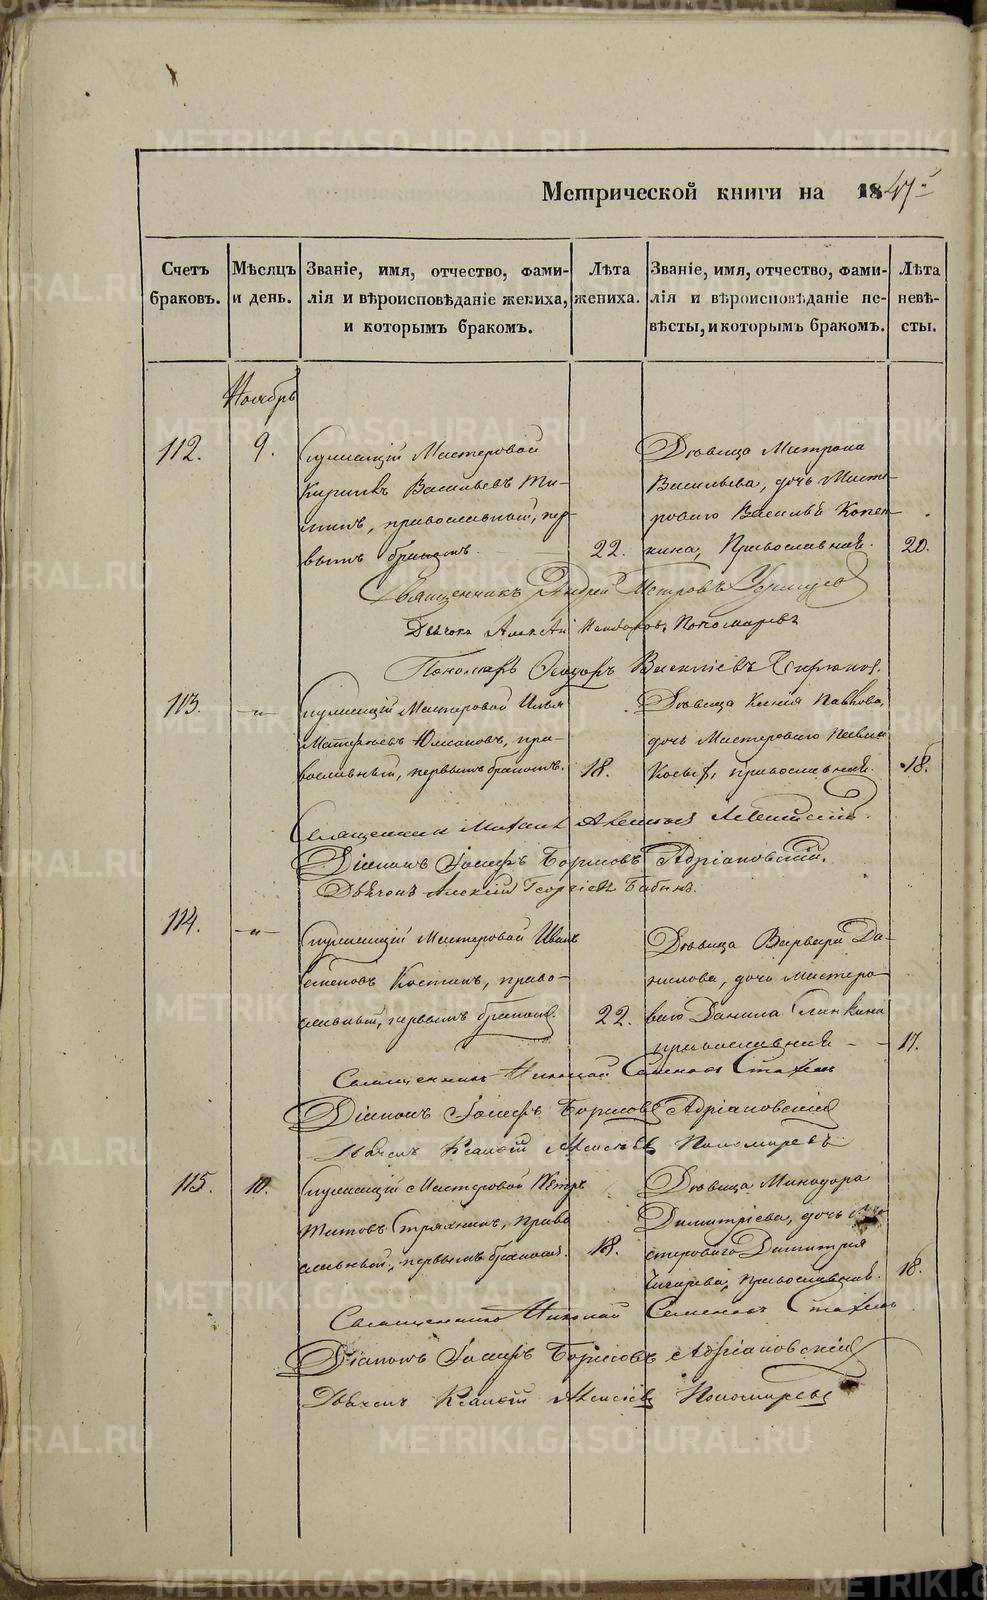 Метрической книги на 1847
Счетъ браковъ.
Мѣсяцъ и день.
Званіе, имя, отчество, фами-
лія и вѣроисповѣданіе жениха,
и которымъ бракомъ.
Лѣта жениха.
Званіе, имя, отчество, фами-
лія и вѣроисповѣданіе не-
вѣсты, и которымъ бракомъ.
Лѣта невѣ-
сты.
Ноябрь
112. 9.
Служащій Мастеровой
Васильевъ
православный, пер-
вымъ бракомъ. 22.
Дѣвица Матрона
Васильева, дочь Масте-
роваго Василья
Православная. 20.
Священникъ Андрей Петровъ
Дьячокъ Алексѣй Пономаревъ
Пономарь Васильевъ
113. -"-
Служащій Мастеровой Илья
пра-
вославный, первымъ бракомъ. 18.
Дѣвица Ксенія Павлова,
дочь Мастероваго Павла
православная. 18.
Священникъ Михаил
Діаконъ Іосифъ Борисовъ Адріановскій.
Дьячокъ Алексій Георгіев Бабинъ.
114. -"-
Служащій Мастеровой Иванъ
Семеновъ Костинъ, право-
славный, первымъ бракомъ. 22.
Дѣвица Варвара Да-
нилова, дочь Мастеро-
ваго Данила
православная 17.
Священникъ Николай Семенов
Діаконъ Іосифъ Борисовъ Адріановскій
Дьячок Алексѣев Пономаревъ
115. 10.
Служащій Мастеровой Петръ
Титовъ право-
славный, первымъ бракомъ. 18.
Дѣвица Минодора
Димитріева, дочь Ма-
стероваго Димитрія
православная. 18.
Священникъ Николай Семеновъ
Діаконъ Іосифъ Борисовъ Адріановскій
Дьячок Алексіевъ Пономаревъ
METRIKI.GASO-URAL.RU